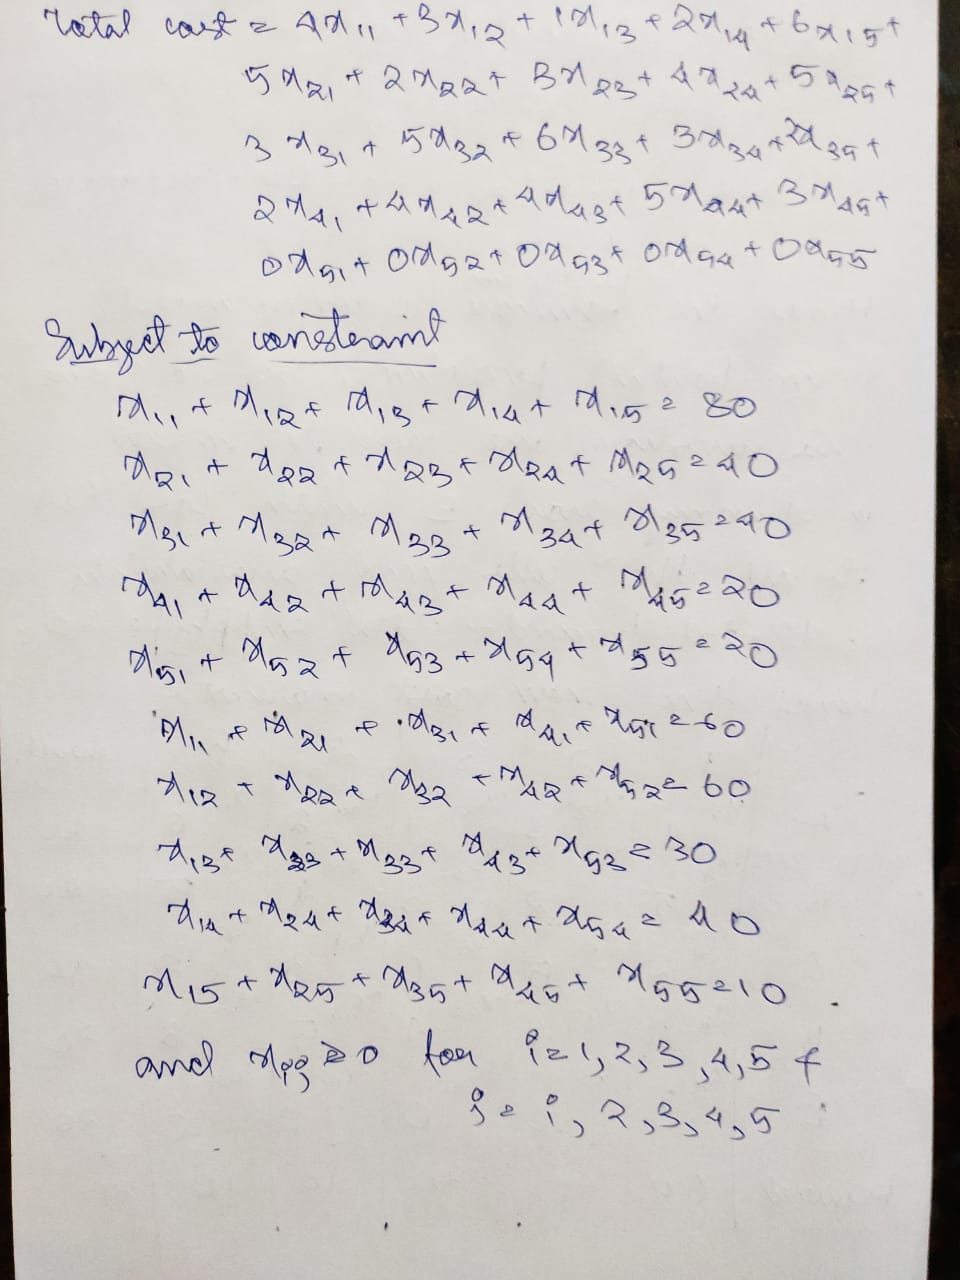 Total cost = 4x11 + 3x12 + 1x13 + 2x14 + 6x15 +
5x21 + 2x22 + 3x23 + 4x24 + 5x25 +
3x31 + 5x32 + 6x33 + 3x34 + 2x35 +
2x41 + 4x42 + 4x43 + 5x44 + 3x45 +
0x51 + 0x52 + 0x53 + 0x54 + 0x55
Subject to constraint
x11 + x12 + x13 + x14 + x15 = 80
x21 + x22 + x23 + x24 + x25 = 40
x31 + x32 + x33 + x34 + x35 = 40
x41 + x42 + x43 + x44 + x45 = 20
x51 + x52 + x53 + x54 + x55 = 20
x11 + x21 + x31 + x41 + x51 = 60
x12 + x22 + x32 + x42 + x52 = 60
x13 + x23 + x33 + x43 + x53 = 30
x14 + x24 + x34 + x44 + x54 = 40
x15 + x25 + x35 + x45 + x55 = 10
and xij ≥ 0 for i = 1, 2, 3, 4, 5 &
j = 1, 2, 3, 4, 5